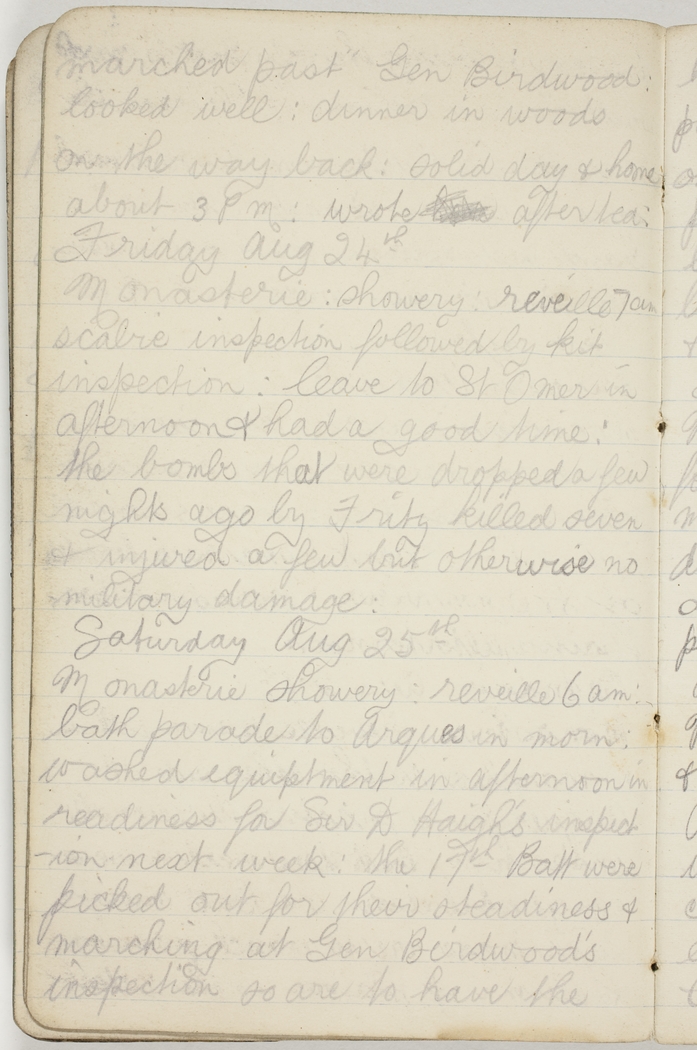 marched past" Gen Birdwood:
looked well: dinner in woods
on the way back: solid day & home
about 3 P m: wrote after tea:
Friday Aug 24th
Monasterie: showery: reveille 7 am
scabie inspection followed by kit
inspection: leave to St Omer in
afternoon & had a good time:
the bombs that were dropped a few
nights ago by Fritz killed seven
& injured a few but otherwise no
military damage:
Saturday Aug 25th
Monasterie showery: reveille 6 am:
bath parade to Arques in morn:
washed equiptment in afternoon in
readiness for Sir D Haigh's inspect
-ion next week: the 17th Batt were
picked out for their steadiness &
marching at Gen Birdwood's
inspection so are to have the